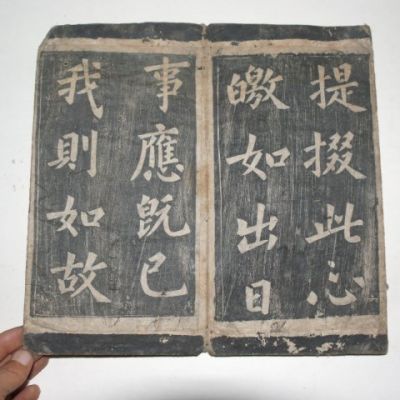 提掇此心
皦如出日
事應旣已
我則如故